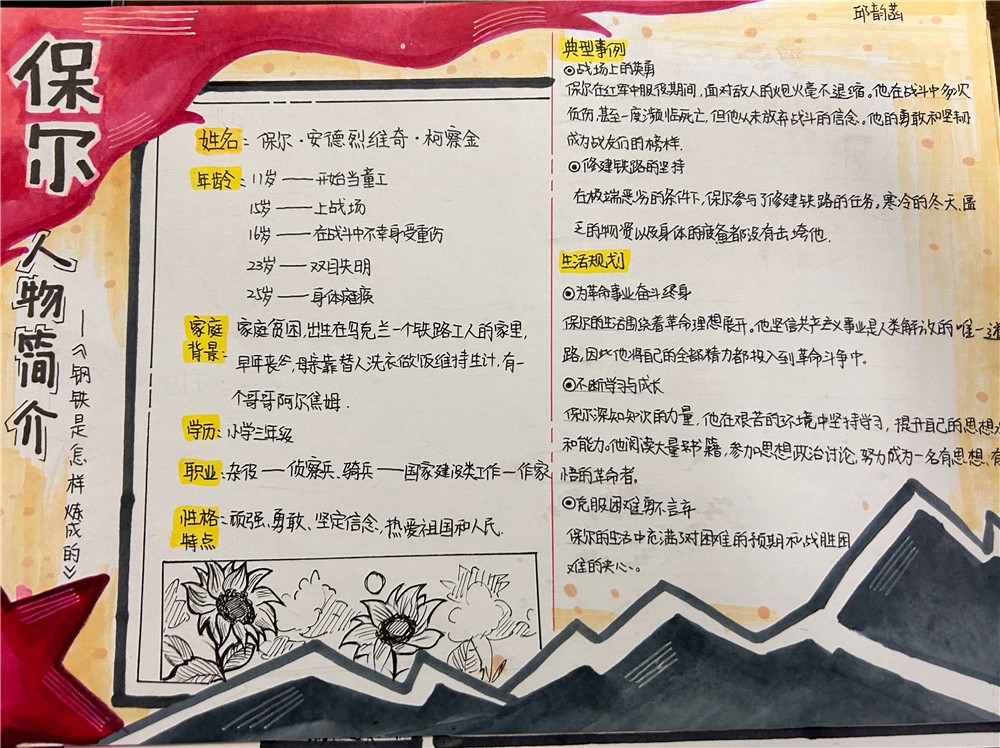 保尔
人物简介
——《钢铁是怎样炼成的》
姓名：保尔·安德烈维奇·柯察金
年龄：11岁——开始当童工
15岁——上战场
16岁——在战斗中不幸身受重伤
23岁——双目失明
25岁——身体瘫痪
家庭背景：家庭贫困，出生在乌克兰一个铁路工人的家里，
早年丧父，母亲靠替人洗衣做饭维持生计，有一
个哥哥阿尔焦姆.
学历：小学三年级
职业：杂役——侦察兵、骑兵——国家建设类工作—作家
性格特点：顽强、勇敢、坚定信念、热爱祖国和人民.
邱韵菡
典型事例
◎战场上的英勇
保尔在红军中服役期间，面对敌人的炮火毫不退缩。他在战斗中多次
负伤，甚至一度濒临死亡，但他从未放弃战斗的信念。他的勇敢和坚韧
成为战友们的榜样.
◎修建铁路的坚持
在极端恶劣的条件下，保尔参与了修建铁路的任务。寒冷的冬天、匮
乏的物资以及身体的疲备都没有击垮他.
生活规划
◎为革命事业奋斗终身
保尔的生活围绕着革命理想展开。他坚信共产主义事业是人类解放的唯一道
路，因此他将自己的全部精力都投入到革命斗争中。
◎不断学习与成长
保尔深知知识的力量，他在艰苦的环境中坚持学习，提升自己的思想
和能力。他阅读大量书籍，参加思想政治讨论，努力成为一名有思想、有
悟的革命者。
◎克服困难勇不言弃
保尔的生活中充满了对困难的预期和战胜困
难的决心。